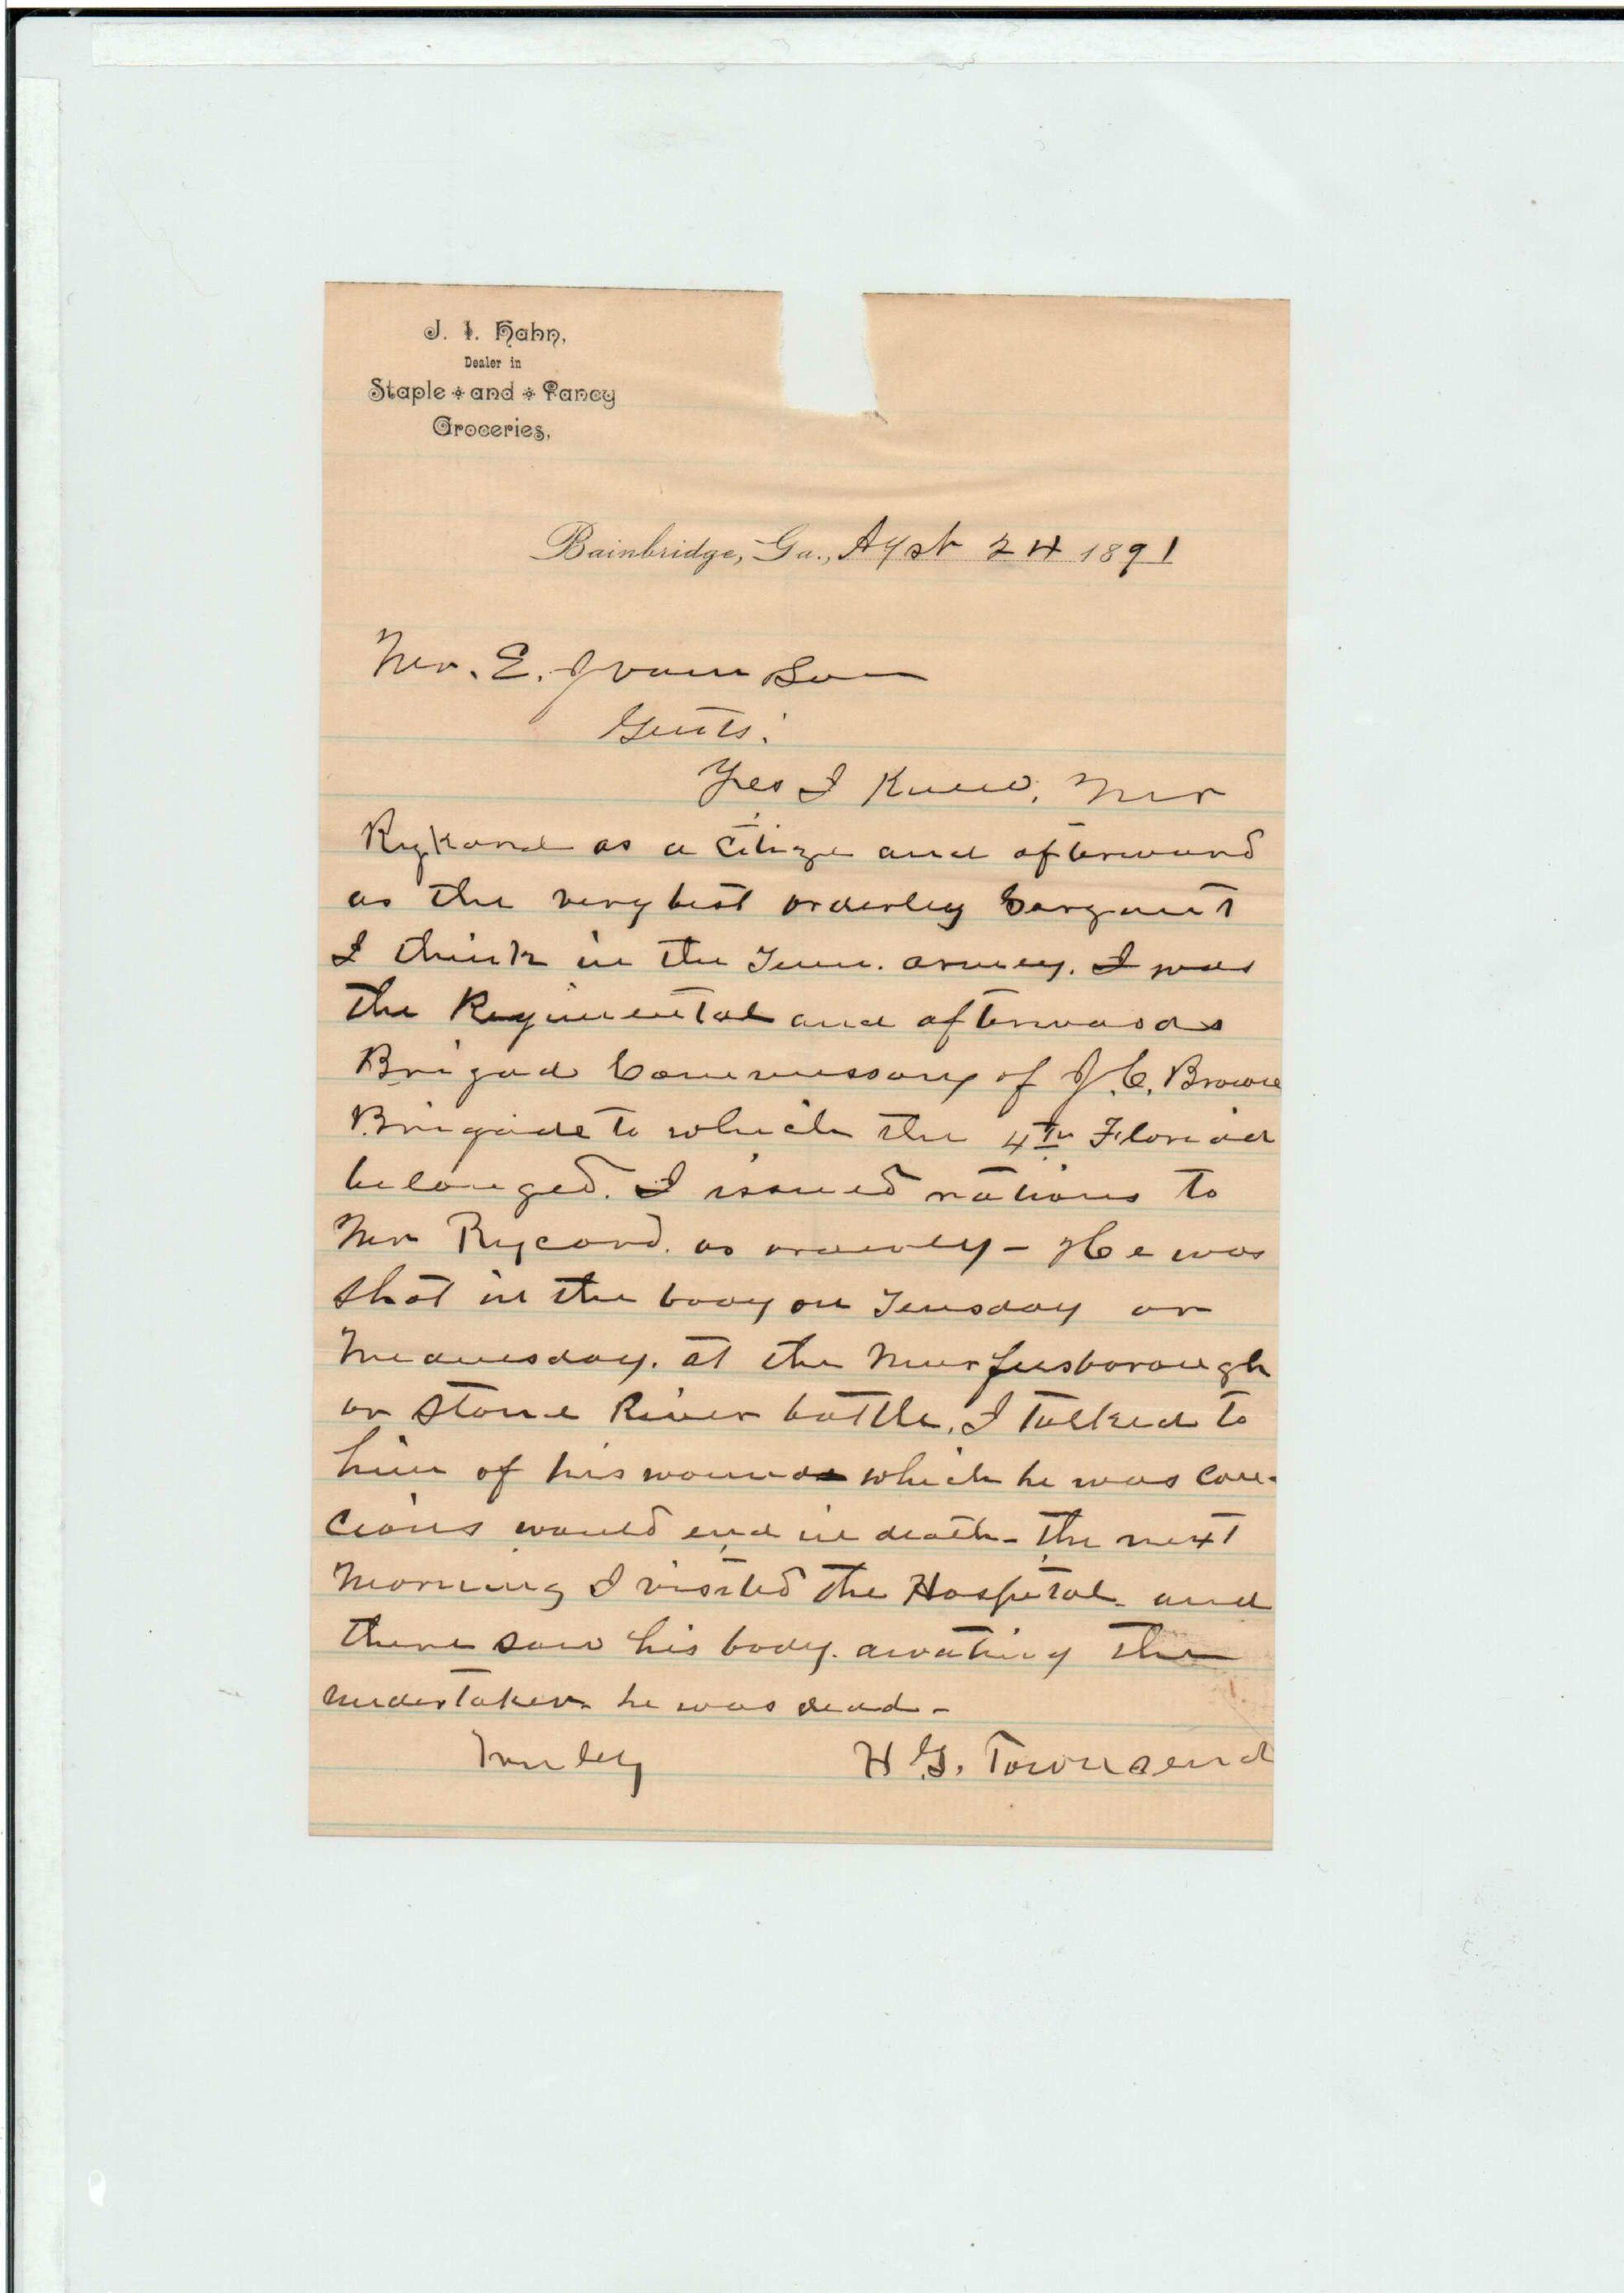 J. I. Hahn,
Dealer in
Staple and Fancy
Groceries,
Bainbridge, Ga., Agst 24 1891
Mr. E.
Gents:
Yes I Knew. Mr
Rykard as a Citize and afterward
as the very best orderley Sargent
I think in the Tenn. army. I was
the Regimental and afterwards
Brigad Commissary of J. C. Browne
Brigade to which the 4th Floriad
belonged. I issued rations to
Mr Rycard. as orderly - He was
shot in the body on Teusday or
Wednesday. at the Murfeesborough
or Stone River battle. I talked to
him of his wounds which he was con-
cious would end in death - the next
Morning I visited the Hospital. and
there saw his body. awating the
undertaker. he was dead -
Truley H. G. Townsend